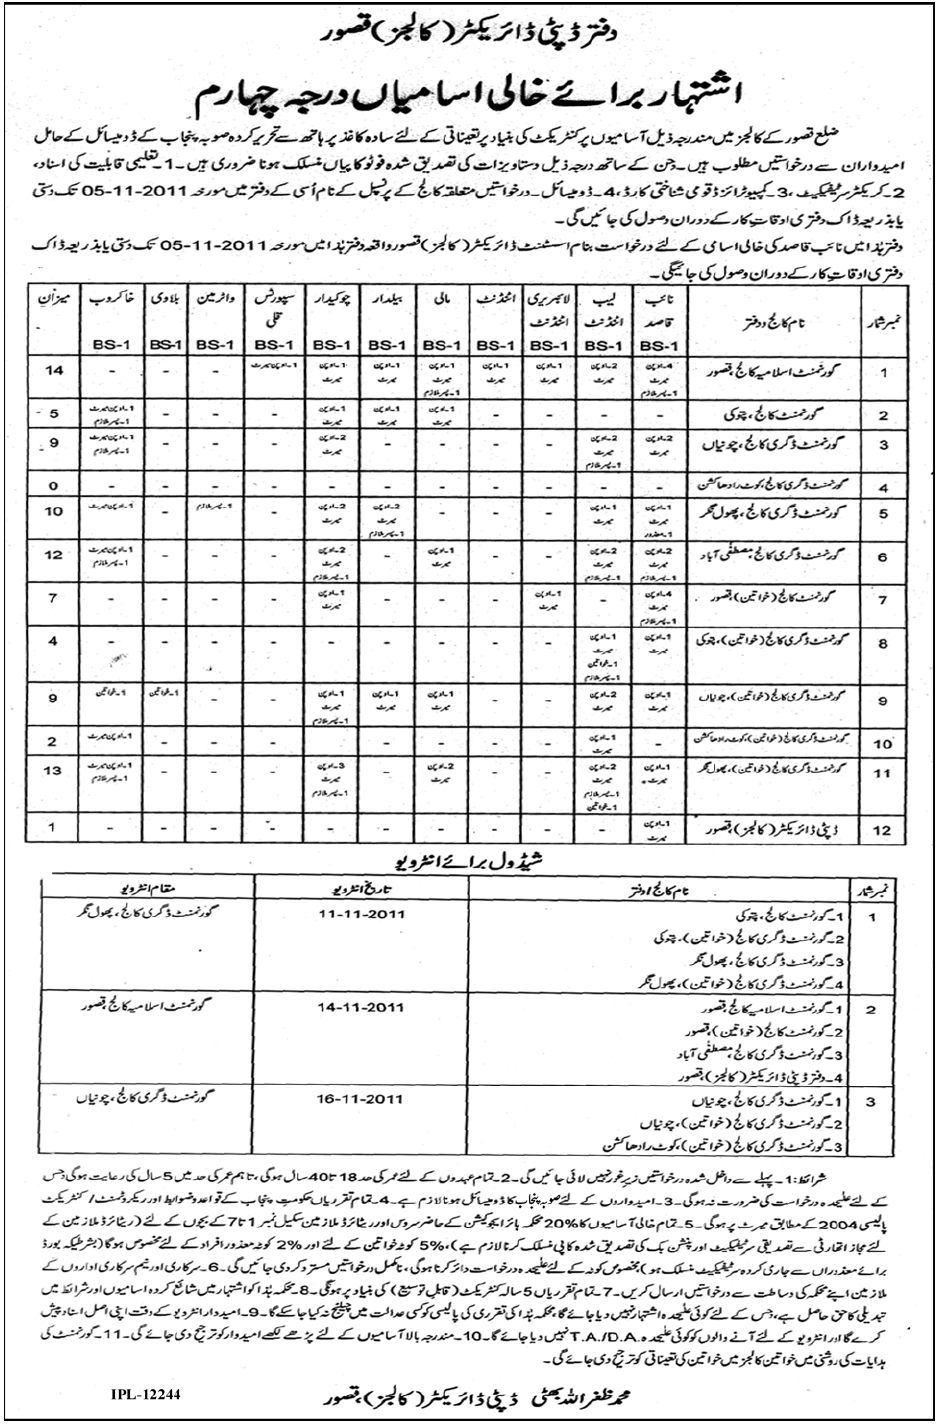 دفتر ڈپٹی ڈائریکٹر (کالجز) قصور
اشتہار برائے خالی اسامیاں درجہ چہارم
ضلع قصور کے کالجز میں مندرجہ ذیل آسامیوں پر کنٹریکٹ کی بنیاد پر تعیناتی کے لئے سادہ کاغذ پر ہاتھ سے تحریر کردہ صوبہ پنجاب کے ڈومیسائل کے حامل
امیدواران سے درخواستیں مطلوب ہیں۔ جن کے ساتھ درجہ ذیل دستاویزات کی تصدیق شدہ فوٹو کاپیاں منسلک ہونا ضروری ہیں۔ 1۔ تعلیمی قابلیت کی اسناد،
2۔ کریکٹر سرٹیفکیٹ، 3۔ کمپیوٹرائزڈ قومی شناختی کارڈ، 4۔ ڈومیسائل۔ درخواستیں متعلقہ کالج کے پرنسپل کے نام اُسی کے دفتر میں مورخہ 05-11-2011 تک دستی
یا بذریعہ ڈاک دفتری اوقات کار کے دوران وصول کی جائیں گی۔
دفتر ہذا میں نائب قاصد کی خالی اسامی کے لئے درخواست بنام اسسٹنٹ ڈائریکٹر (کالجز) قصور واقع دفتر ہذا میں مورخہ 05-11-2011 تک دستی یا بذریعہ ڈاک
دفتری اوقات کار کے دوران وصول کی جائیگی۔
نمبر شمار | نام کالج و دفتر | نائب قاصد BS-1 | لیب اٹنڈنٹ BS-1 | لائبریری اٹنڈنٹ BS-1 | اٹنڈنٹ BS-1 | مالی BS-1 | بیلدار BS-1 | چوکیدار BS-1 | سپورٹس قلی BS-1 | واٹرمین BS-1 | بلاوی BS-1 | خاکروب BS-1 | میزان
1 | گورنمنٹ اسلامیہ کالج، قصور | 4۔اوپن میرٹ 1۔پسر ملازم | 2۔اوپن میرٹ | 1۔اوپن میرٹ | 1۔اوپن میرٹ | 1۔اوپن میرٹ 1۔پسر ملازم | 1۔اوپن میرٹ | 1۔اوپن میرٹ | 1۔اوپن میرٹ | - | - | - | 14
2 | گورنمنٹ کالج، پتوکی | - | - | - | - | 1۔اوپن میرٹ | 1۔اوپن میرٹ | 1۔اوپن میرٹ | - | - | - | 1۔اوپن میرٹ 1۔پسر ملازم | 5
3 | گورنمنٹ ڈگری کالج، چونیاں | 2۔اوپن میرٹ | 2۔اوپن میرٹ 1۔پسر ملازم | - | - | - | - | 2۔اوپن میرٹ | - | - | - | 1۔اوپن میرٹ 1۔پسر ملازم | 9
4 | گورنمنٹ ڈگری کالج، کوٹ رادھا کشن | - | - | - | - | - | - | - | - | - | - | - | 0
5 | گورنمنٹ ڈگری کالج، پھول نگر | 1۔اوپن میرٹ 1۔معذور | 1۔اوپن میرٹ | - | - | - | 2۔اوپن میرٹ 1۔پسر ملازم | 2۔اوپن میرٹ | - | 1۔پسر ملازم | - | 1۔اوپن میرٹ | 10
6 | گورنمنٹ ڈگری کالج، مصطفٰی آباد | 2۔اوپن میرٹ 1۔پسر ملازم | 2۔اوپن میرٹ 1۔پسر ملازم | - | - | 1۔اوپن میرٹ | - | 2۔اوپن میرٹ 1۔پسر ملازم | - | - | - | 1۔اوپن میرٹ 1۔پسر ملازم | 12
7 | گورنمنٹ کالج (خواتین)، قصور | 4۔اوپن میرٹ 1۔پسر ملازم | - | 1۔اوپن میرٹ | - | - | - | 1۔اوپن میرٹ | - | - | - | - | 7
8 | گورنمنٹ ڈگری کالج (خواتین)، پتوکی | 1۔اوپن میرٹ | 1۔اوپن میرٹ 1۔خواتین 1۔پسر ملازم | - | - | - | - | - | - | - | - | - | 4
9 | گورنمنٹ ڈگری کالج (خواتین)، چونیاں | 1۔اوپن میرٹ | 2۔اوپن میرٹ | - | - | 1۔اوپن میرٹ | 1۔اوپن میرٹ | 1۔اوپن میرٹ 1۔پسر ملازم | - | - | 1۔خواتین | 1۔خواتین | 9
10 | گورنمنٹ ڈگری کالج (خواتین)، کوٹ رادھا کشن | - | 1۔اوپن میرٹ | - | - | - | - | - | - | - | - | 1۔اوپن میرٹ | 2
11 | گورنمنٹ ڈگری کالج (خواتین)، پھول نگر | 1۔اوپن میرٹ | 2۔اوپن میرٹ 1۔پسر ملازم 1۔خواتین | - | - | 2۔اوپن میرٹ | - | 3۔اوپن میرٹ 1۔پسر ملازم | - | - | - | 1۔اوپن میرٹ 1۔پسر ملازم | 13
12 | ڈپٹی ڈائریکٹر (کالجز)، قصور | 1۔اوپن میرٹ | - | - | - | - | - | - | - | - | - | - | 1
شیڈول برائے انٹرویو
نمبر شمار | نام کالج/دفتر | تاریخ انٹرویو | مقام انٹرویو
1 | 1۔ گورنمنٹ کالج، پتوکی | 11-11-2011 | گورنمنٹ ڈگری کالج، پھول نگر
2۔ گورنمنٹ ڈگری کالج (خواتین)، پتوکی
3۔ گورنمنٹ ڈگری کالج، پھول نگر
4۔ گورنمنٹ ڈگری کالج (خواتین)، پھول نگر
2 | 1۔ گورنمنٹ اسلامیہ کالج، قصور | 14-11-2011 | گورنمنٹ اسلامیہ کالج، قصور
2۔ گورنمنٹ کالج (خواتین)، قصور
3۔ گورنمنٹ ڈگری کالج، مصطفٰی آباد
4۔ دفتر ڈپٹی ڈائریکٹر (کالجز)، قصور
3 | 1۔ گورنمنٹ ڈگری کالج، چونیاں | 16-11-2011 | گورنمنٹ ڈگری کالج، چونیاں
2۔ گورنمنٹ ڈگری کالج (خواتین)، چونیاں
3۔ گورنمنٹ ڈگری کالج (خواتین)، کوٹ رادھا کشن
شرائط: 1۔ پہلے سے داخل شدہ درخواستیں زیر غور نہیں لائی جائیں گی۔ 2۔ تمام عہدوں کے لئے عمر کی حد 18 تا 40 سال ہوگی، تاہم عمر کی حد میں 5 سال کی رعایت ہوگی جس
کے لئے علیحدہ درخواست کی ضرورت نہ ہوگی۔ 3۔ امیدواروں کے لئے صوبہ پنجاب کا ڈومیسائل ہونا لازم ہے۔ 4۔ تمام تقرریاں حکومت پنجاب کے قواعد و ضوابط اور ریکروٹمنٹ/کنٹریکٹ
پالیسی 2004 کے مطابق میرٹ پر ہوگی۔ 5۔ تمام خالی آسامیوں کا %20 محکمہ ہائر ایجوکیشن کے حاضر سروس اور ریٹائرڈ ملازمین سکیل نمبر 1 تا 7 کے بچوں کے لئے (ریٹائرڈ ملازمین کے
لئے مجاز اتھارٹی سے تصدیقی سرٹیفکیٹ اور پنشن بک کی تصدیق شدہ کاپی منسلک کرنا لازم ہے)، %5 کوٹہ خواتین کے لئے اور %2 کوٹہ معذور افراد کے لئے مخصوص ہوگا (بشرطیکہ بورڈ
برائے معذوراں سے جاری کردہ سرٹیفکیٹ منسلک ہو) مخصوص کوٹہ کے لئے علیحدہ درخواست دائر کرنا ہوگی، نامکمل درخواستیں مسترد کردی جائیں گی۔ 6۔ سرکاری و نیم سرکاری اداروں کے
ملازمین اپنے محکمہ کی وساطت سے درخواستیں ارسال کریں۔ 7۔ تمام تقرریاں 5 سالہ کنٹریکٹ (قابل توسیع) کی بنیاد پر ہوگی۔ 8۔ محکمہ ہذا کو اشتہار میں شائع کردہ اسامیوں اور شرائط میں
تبدیلی کا حق حاصل ہے، جس کے لئے کوئی علیحدہ اشتہار نہیں دیا جائے گا، محکمہ ہذا کی تقرری کی پالیسی کو کسی عدالت میں چیلنج نہ کیا جاسکے گا۔ 9۔ امیدوار انٹرویو کے وقت اپنی اصل اسناد پیش
کرے گا اور انٹرویو کے لئے آنے والوں کو کوئی علیحدہ T.A./D.A. نہیں دیا جائے گا۔ 10۔ مندرجہ بالا آسامیوں کے لئے پڑھے لکھے امیدوار کو ترجیح دی جائے گی۔ 11۔ گورنمنٹ کی
ہدایات کی روشنی میں خواتین کالجز میں خواتین کی تعیناتی کو ترجیح دی جائے گی۔
محمد ظفر اللہ بھٹی ڈپٹی ڈائریکٹر (کالجز)، قصور
IPL-12244